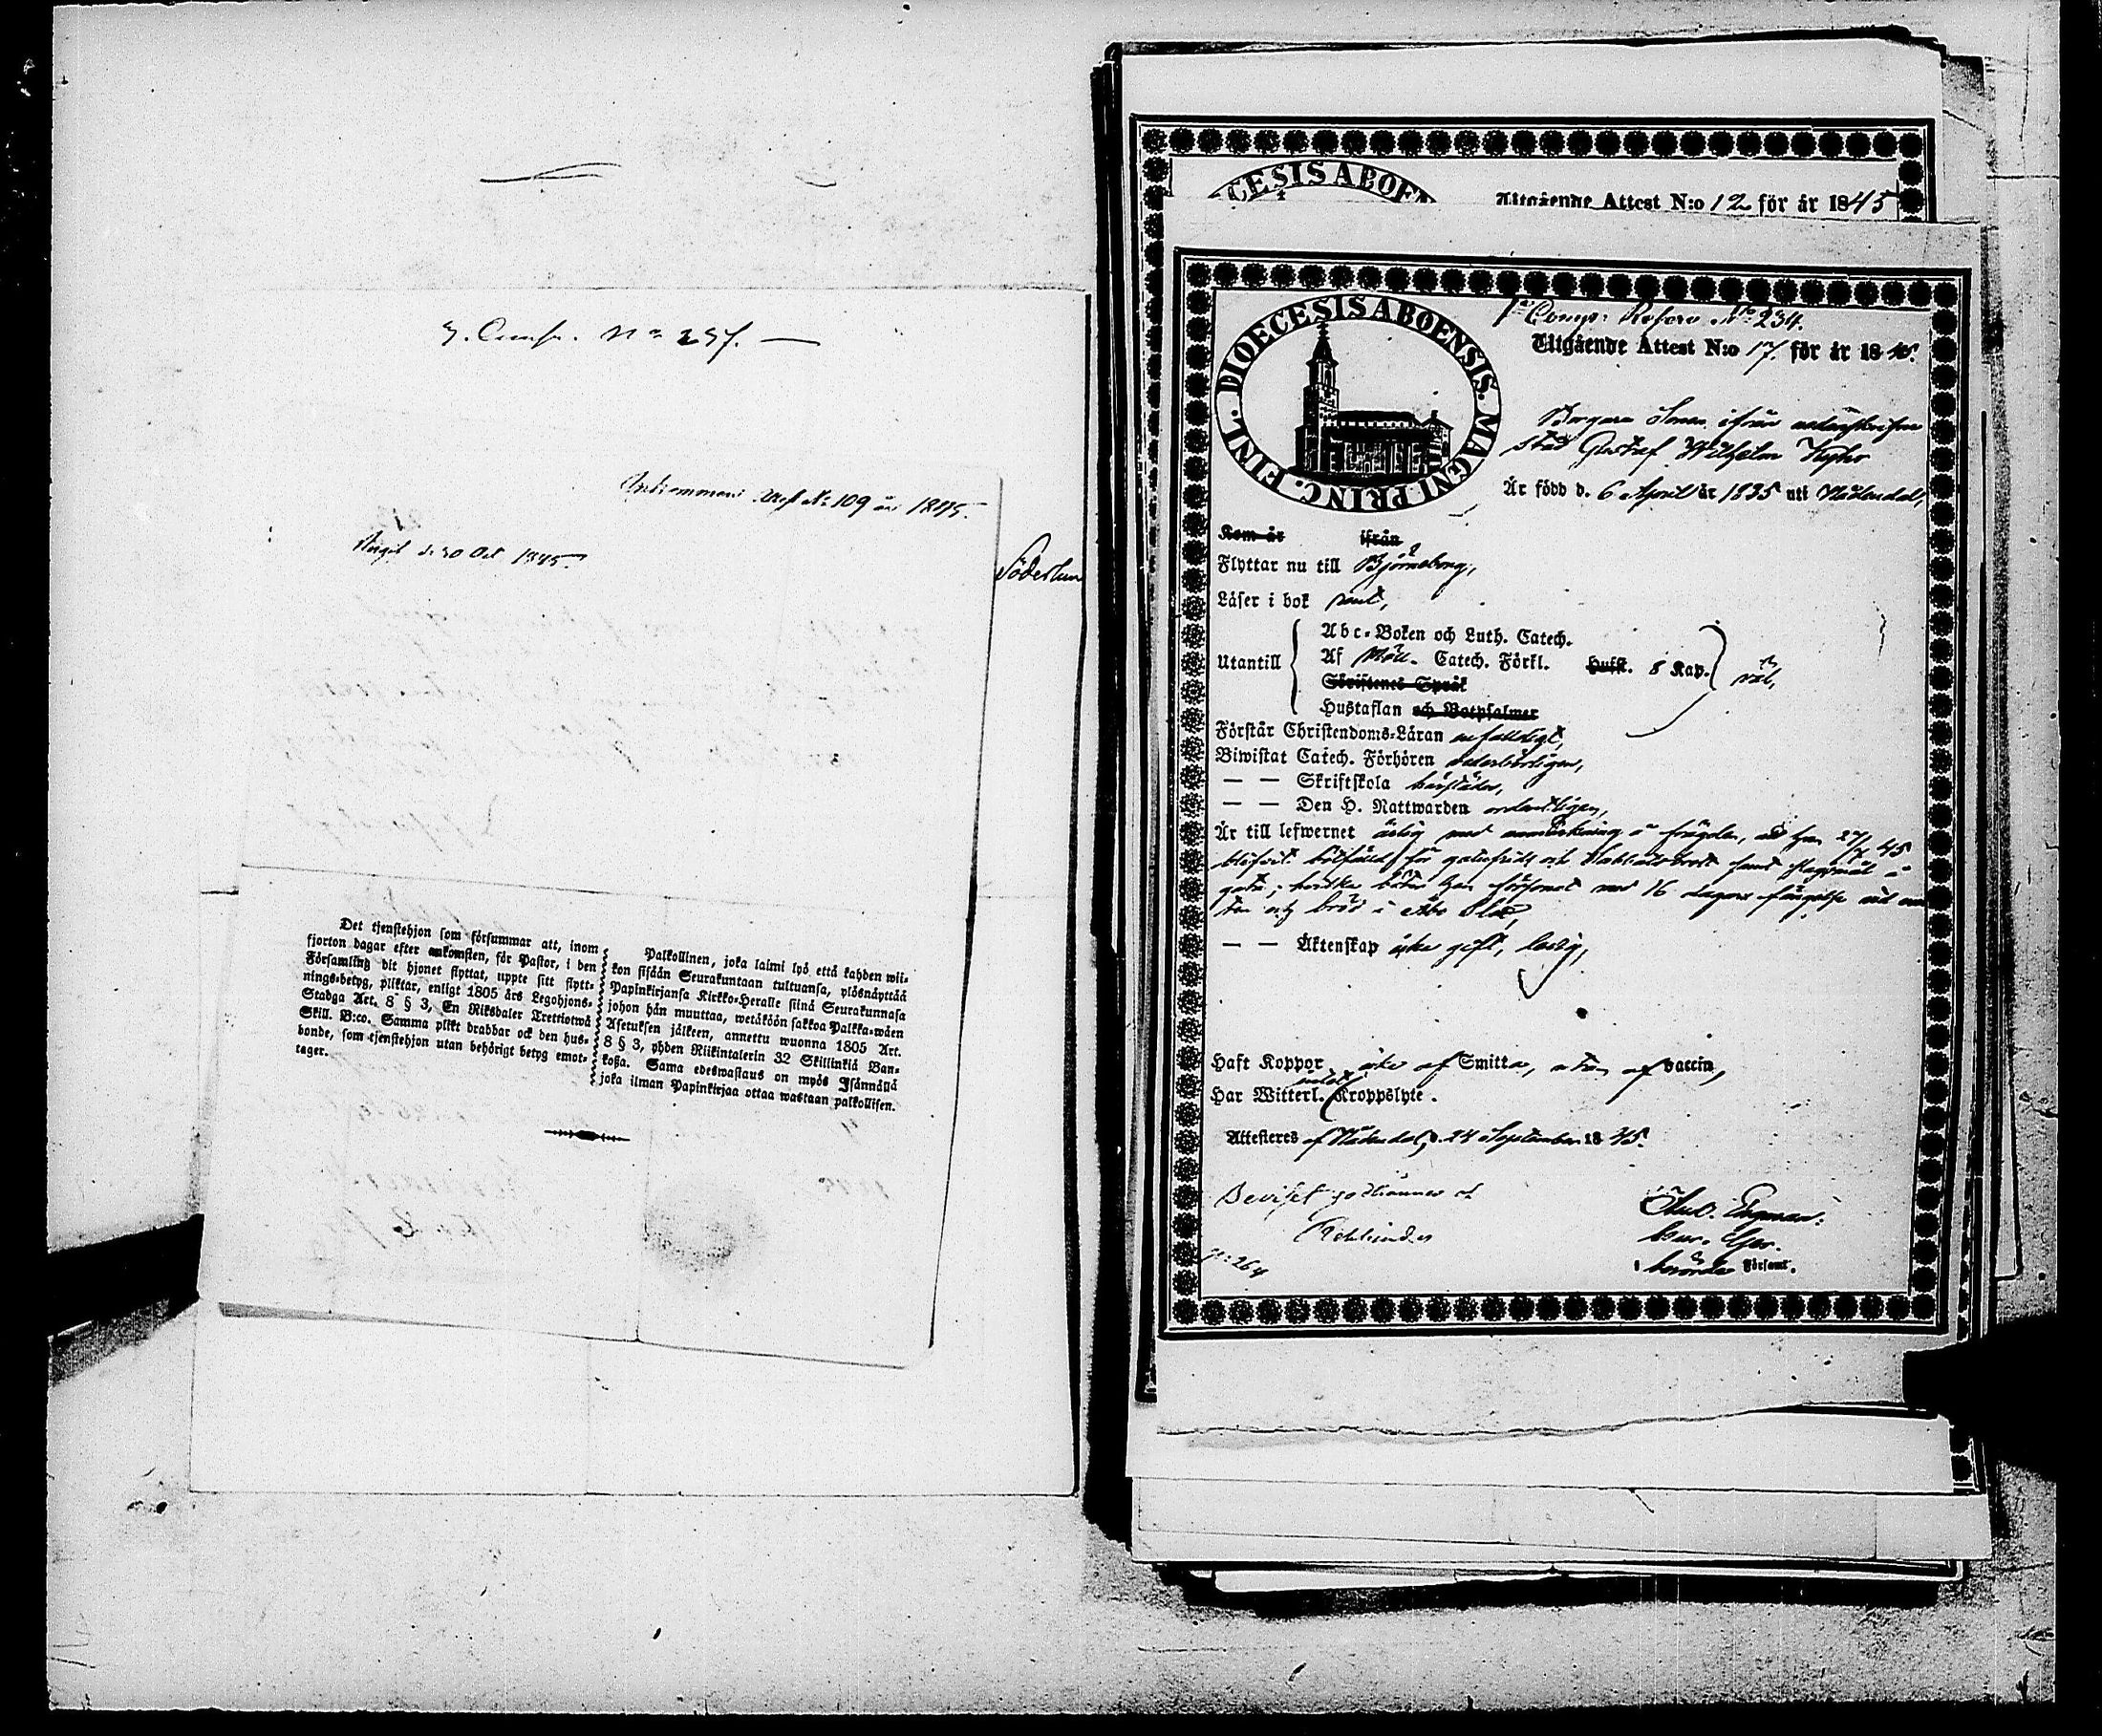 Ankommeni Attest No 109 år 1845.
d. 30 Oct 1845.
Söderlun
Det tjenstehjon som försummar att, inom
fjorton dagar efter ankomsten, för Pastor, i den
Församling dit hjonet flyttat, uppte sitt flytt-
nings-betyg, pliktar, enligt 1805 års Legohjons-
Stadga Art. 8 § 3, En Riksdaler Trettiotwå
Skill. B:co. Samma plikt drabbar ock den hus-
bonde, som tjenstehjon utan behörigt betyg emot-
tager.
Palkollinen, joka laimi lyö että kahden wii-
kon sisään Seurakuntaan tultuansa, ylösnäyttää
Papinkirjansa Kirkko-Heralle siinä Seurakunnasa
johon hän muuttaa, wetäköön sakkoa Palkka-wäen
Asetuksen jälkeen, annettu wuonna 1805 Art.
8 § 3, yhden Riikintalerin 32 Skillinkiä Ban-
koßa. Sama edeswastaus on myös Isännällä
joka ilman Papinkirjaa ottaa wastaan palkollisen.
CESIS ABOEN
Utgående Attest N:o 12 för år 1845
DIOECESIS ABOENSIS. MAGNI PRINC. FINL.
No 234.
Utgående Attest N:o 17. för år 1845.
Borgare Sonen ifrån
stad Gustaf Wilhelm
Är född d. 6 April år 1835 uti Nådendal,
Kom år ifrån
Flyttar nu till Björneborg,
Läser i bok rent,
Utantill
Abc-Boken och Luth. Catech.
Af Möll. Catech. Förkl. Husst. 8 Kap. väl,
Skriftenes Språk
Hustaflan och Botpsalmer
Förstår Christendoms-Läran enfaldigt,
Biwistat Catech. Förhören
— — Skriftskola härstädes,
— — Den H. Nattwarden ordentligen,
Är till lefwernet ärlig med anmärkning å frägden, att han 27/7 45
blifvit bötfälld för och Sabbatsbrott samt slagsmål å
gata; hvilka böter han försonat med 16 dagars fängelse vid vat-
ten och bröd i Åbo Slott,
— — Äktenskap icke gift, ledig,
Haft Koppor icke af Smitta, utan af vaccin,
Har Witterl. intet Kroppslyte.
Attesteres af Nådendal, d. 24 September 1845.
Beviset godkännes af
No 264
i berörde Församl.